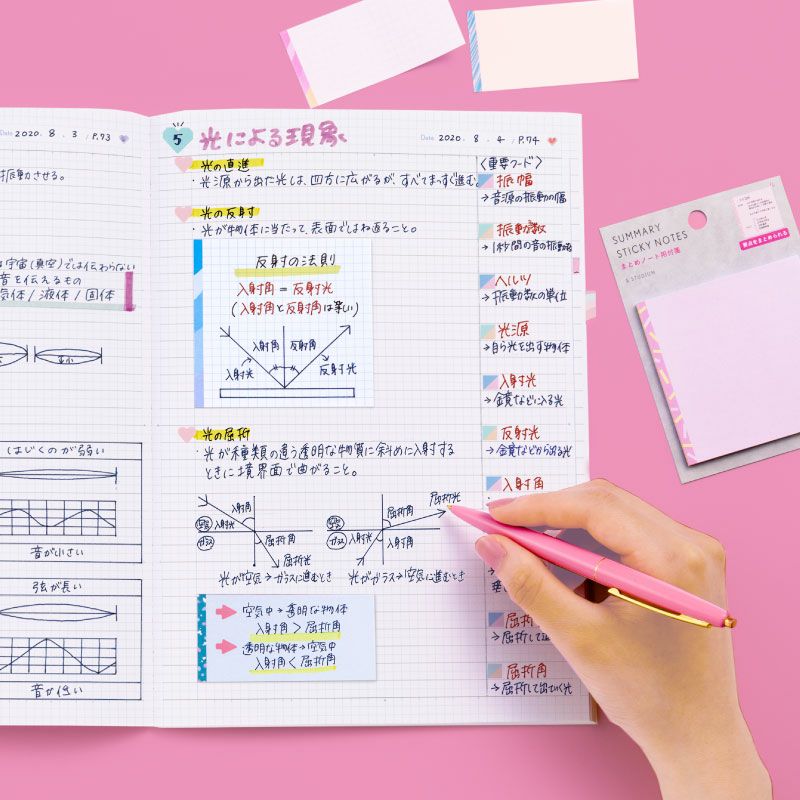 Date 2020. 8. 3 / P.73
振動させる。
は宇宙(真空)では伝わらない
音を伝えるもの
気体/液体/固体
はじくのが弱い
音が小さい
弦が長い
音が低い
5 光による現象
Date 2020. 8. 4 / P.74
光の直進
・光源から出た光は、四方に広がるが、すべてまっすぐ進む。
光の反射
・光が物体に当たって、表面ではね返ること。
反射の法則
入射角=反射光
(入射角と反射角は等しい)
入射角 反射角
入射光 反射光
光の屈折
・光が種類の違う透明な物質に斜めに入射する
ときに境界面で曲がること。
入射角
空気 入射光
ガラス 屈折角
屈折光
光が空気→ガラスに進むとき
屈折光
屈折角
空気
ガラス 入射角
光がガラス→空気に進むとき
空気中→透明な物体
入射角>屈折角
透明な物体→空気中
入射角<屈折角
〈重要ワード〉
振幅
→音源の振動の幅
振動数
→1秒間の音の振動数
ヘルツ
→振動数の単位
光源
→自ら光を出す物体
入射光
→鏡などに入る光
反射光
→鏡などから出る光
入射角
屈折
→屈折して
屈折角
→屈折して出ていく光
SUMMARY
STICKY NOTES
まとめノート用付箋
& STUDIUM
要点をまとめられる